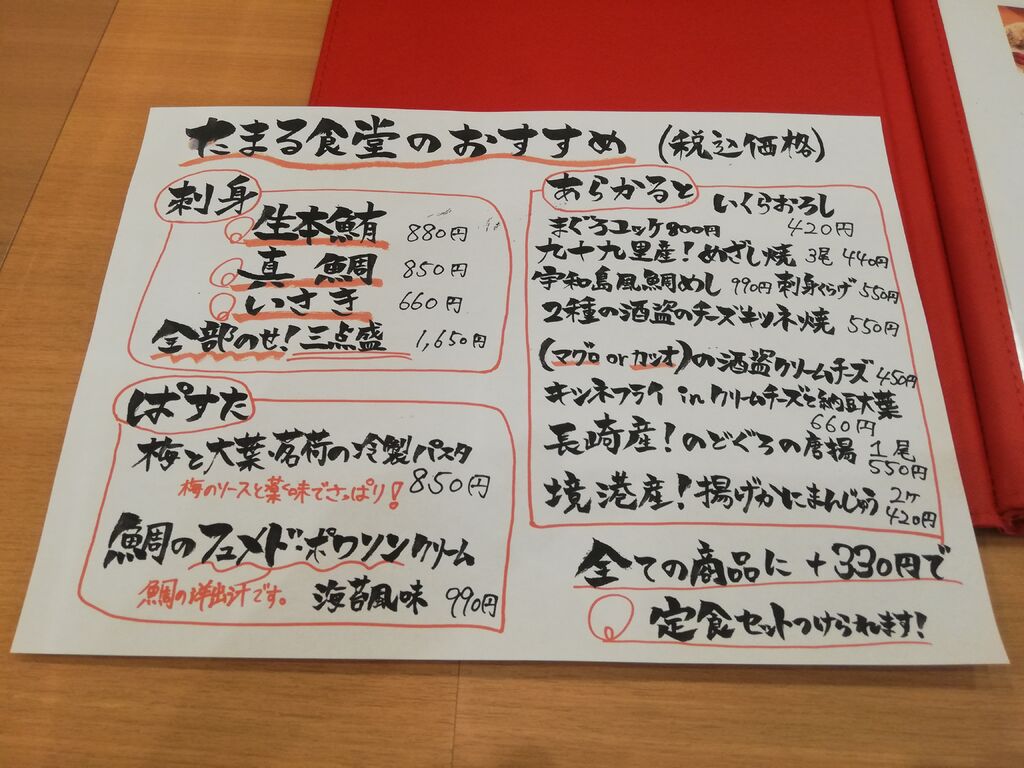 たまる食堂のおすすめ (税込価格)
刺身
生本鮪 880円
真鯛 850円
いさき 660円
全部のせ!三点盛 1,650円
ぱすた
梅と大葉・茗荷の冷製パスタ
梅のソースと薬味でさっぱり! 850円
鯛のフュメド・ポワソンクリーム
鯛の洋出汁です。 海苔風味 990円
あらかると
いくらおろし
420円
まぐろユッケ 800円
九十九里産!めざし焼 3尾 440円
宇和島風鯛めし 990円 刺身くらげ 550円
2種の酒盗のチーズキツネ焼 550円
(マグロ or カツオ)の酒盗クリームチーズ 450円
キツネフライ in クリームチーズと納豆大葉
660円
長崎産!のどぐろの唐揚 1尾
550円
境港産!揚げかにまんじゅう 2ヶ
420円
全ての商品に +330円で
定食セットつけられます!